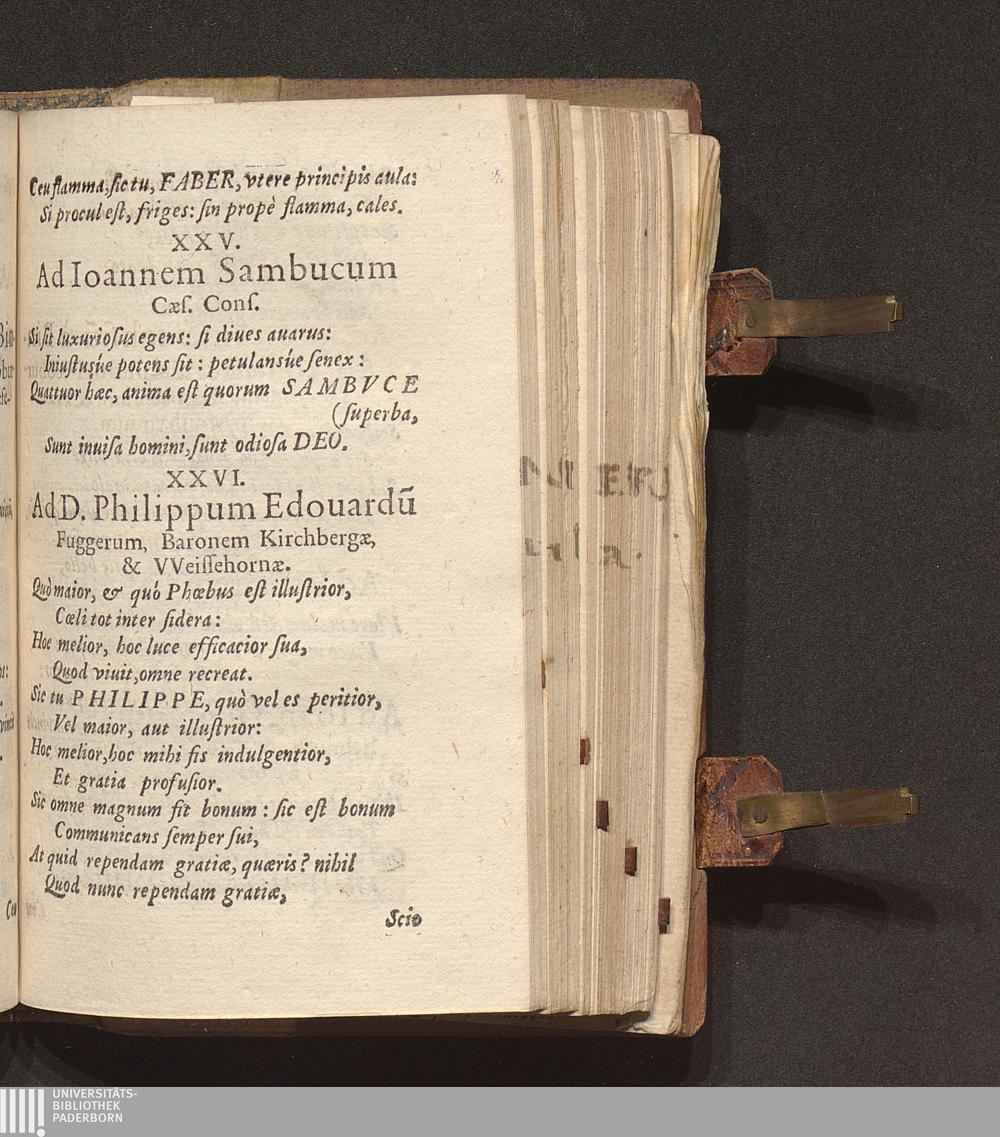 Ceu flamma, ſic tu, FABER, vtere principis aula:
Si procul eſt, friges: ſin propè flamma, cales.
XXV.
Ad Ioannem Sambucum
Cæſ. Conſ.
Si ſit luxurioſus egens: ſi diues auarus:
Iniuſtusúe potens ſit: petulansúe ſenex:
Quattuor hæc, anima eſt quorum SAMBVCE
(ſuperba,
Sunt inuiſa homini, ſunt odioſa DEO.
XXVI.
Ad D. Philippum Edouardū
Fuggerum, Baronem Kirchbergæ,
& VVeiſſehornæ.
Quò maior, & quò Phœbus eſt illuſtrior,
Cœli tot inter ſidera:
Hoc melior, hoc luce efficacior ſua,
Quod viuit, omne recreat.
Sic tu PHILIPPE, quò vel es peritior,
Vel maior, aut illuſtrior:
Hoc melior, hoc mihi fis indulgentior,
Et gratia profuſior.
Sic omne magnum fit bonum: ſic eſt bonum
Communicans ſemper ſui,
At quid rependam gratiæ, quæris? nihil
Quod nunc rependam gratiæ,
Scio
UNIVERSITÄTS-
BIBLIOTHEK
PADERBORN